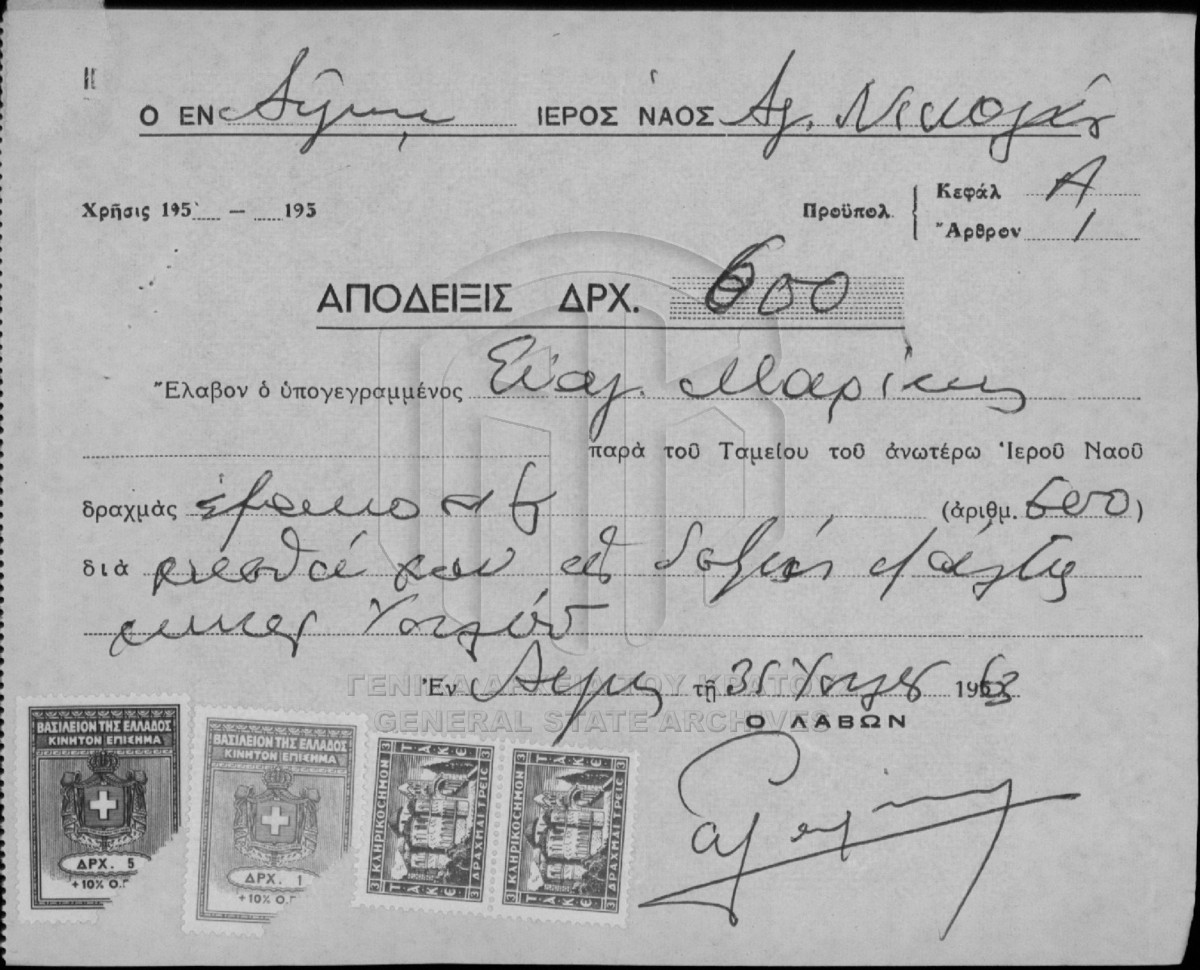 Ο ΕΝ Αἰγίνῃ ΙΕΡΟΣ ΝΑΟΣ Ἁγ. Νικολάου
Χρῆσις 195 — 195
Προϋπολ. Κεφάλ Α
Ἄρθρον 1
ΑΠΟΔΕΙΞΙΣ ΔΡΧ. 600
Ἔλαβον ὁ ὑπογεγραμμένος Εὐαγ. Μαρίνης
παρὰ τοῦ Ταμείου τοῦ ἀνωτέρω Ἱεροῦ Ναοῦ
δραχμὰς ἑξακοσίας (ἀριθμ. 600)
διὰ μισθό μου ὡς δεξιός ψάλτης
μηνός Ἰουλίου
Ἐν Αἰγίνῃ τῇ 31 Ἰουλίου 1963
Ο ΛΑΒΩΝ
ΓΕΝΙΚΑ ΑΡΧΕΙΑ ΤΟΥ ΚΡΑΤΟΥΣ
GENERAL STATE ARCHIVES
ΒΑΣΙΛΕΙΟΝ ΤΗΣ ΕΛΛΑΔΟΣ
ΚΙΝΗΤΟΝ ΕΠΙΣΗΜΑ
ΔΡΧ. 5
+10% Ο.Γ
ΒΑΣΙΛΕΙΟΝ ΤΗΣ ΕΛΛΑΔΟΣ
ΚΙΝΗΤΟΝ ΕΠΙΣΗΜΑ
ΔΡΧ. 1
+10% Ο.Γ
3 ΤΑΚΕ 3
ΚΛΗΡΙΚΟCΗΜΟΝ
ΔΡΑΧΜΑΙ ΤΡΕΙC
3 ΤΑΚΕ 3
3 ΤΑΚΕ 3
ΚΛΗΡΙΚΟCΗΜΟΝ
ΔΡΑΧΜΑΙ ΤΡΕΙC
3 ΤΑΚΕ 3